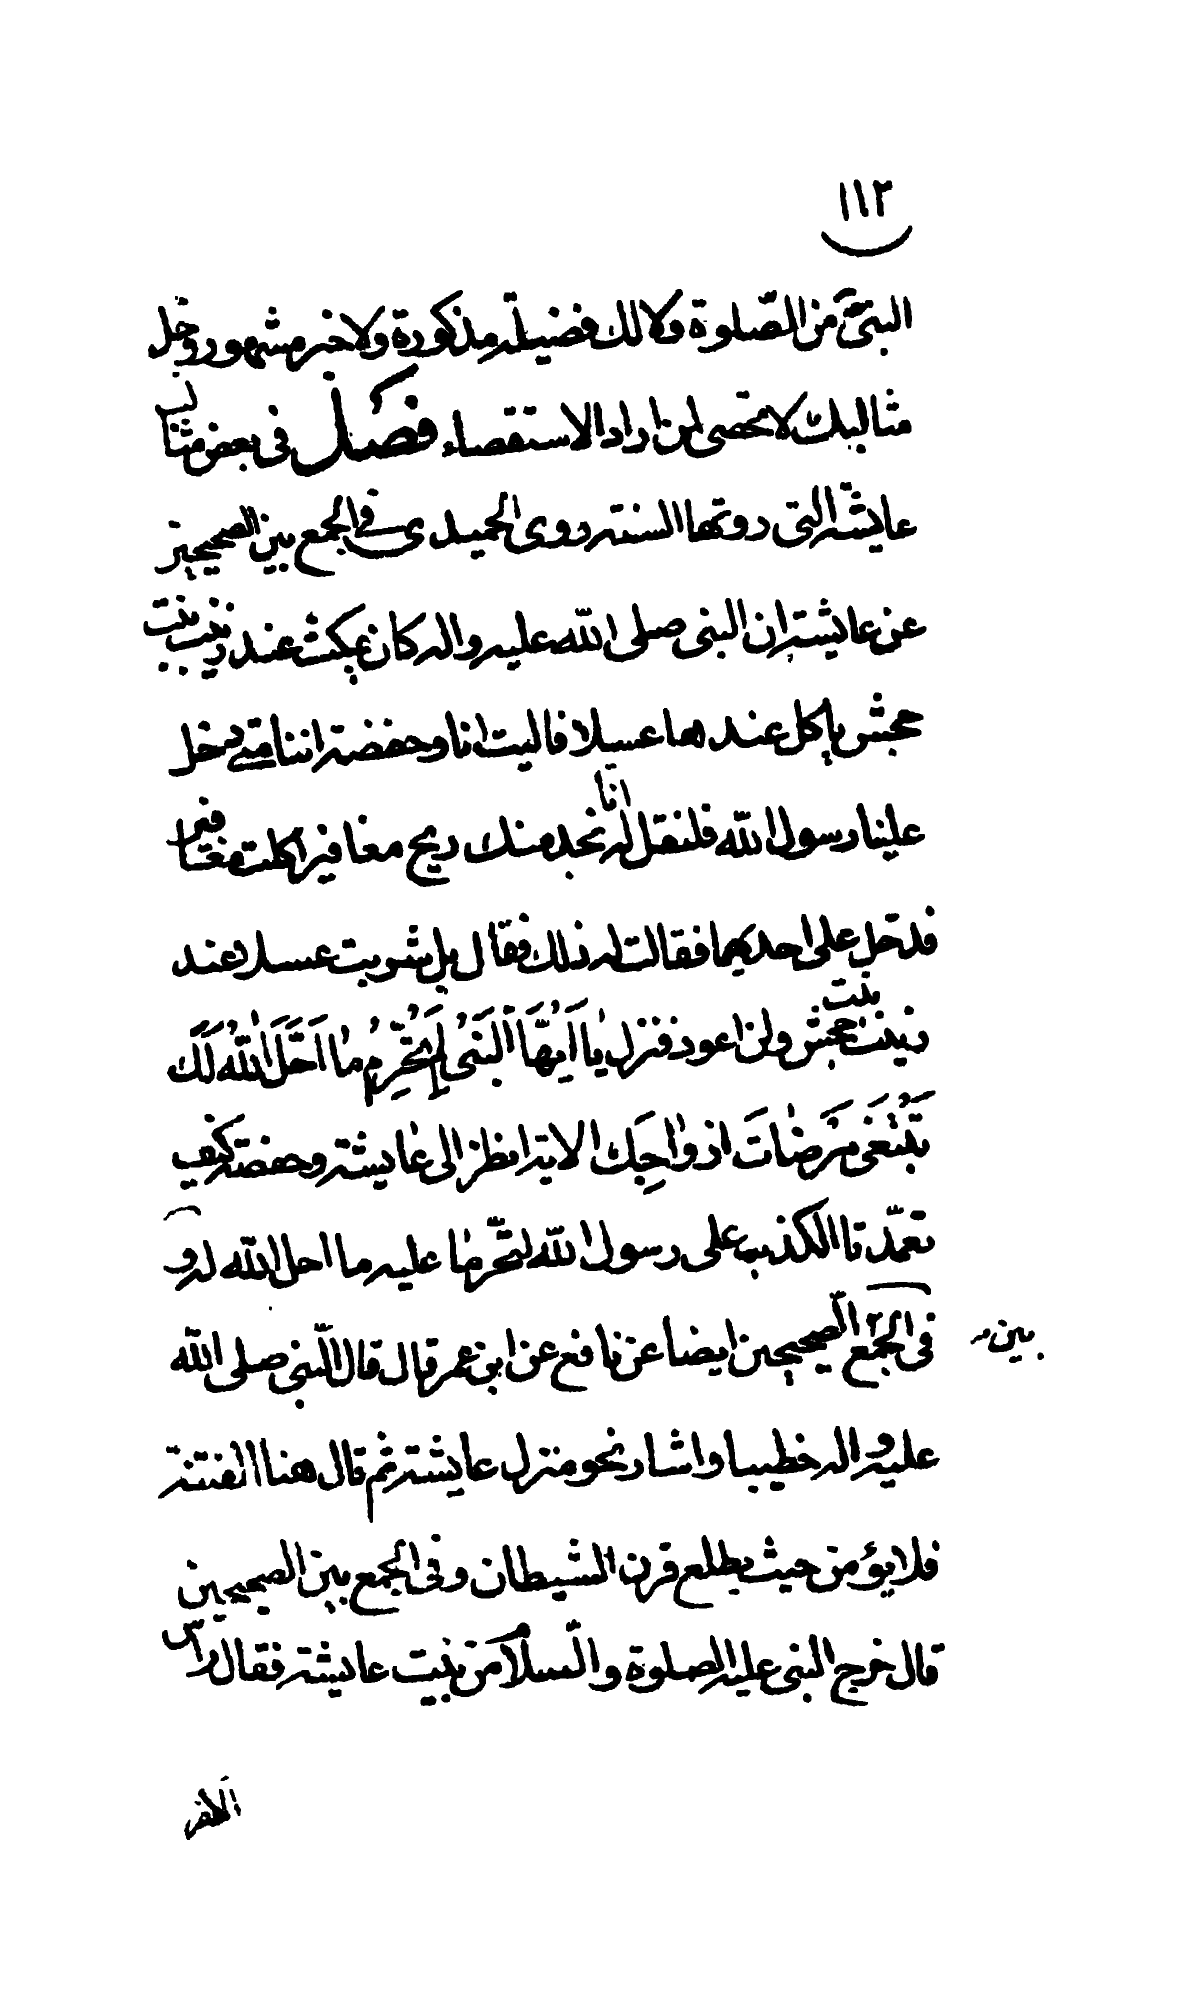 ١١٣
النبيّ من الصّلوة ولا لك فضيلة مذكورة ولا خبر مشهور وجل
مثالبك لا تحصى لمن اراد الاستقصاء فصل في بعض مثالب
عايشة التي روتها السنة روى الحميدي في الجمع بين الصحيحين
عن عايشة ان النبى صلى الله عليه واله كان يمكث عند زينب بنت
جحش ياكل عندها عسلا فاليت انا وحفضة اننا متى دخل
علينا رسول الله فلنقل له انا نجد منك ريح مغافير اكلت مغافير
فدخل على احديهما فقالت له ذلك فقال بل شربت عسلا عند
زينب بنت جحش ولن اعود فنزل يا اَيُّهَا النَّبى لِمَ تُحَرِّمُ مٰا اَحَلَّ اللهُ لَكَ
تَبْتَغى مَرضٰاتَ ازوٰاجِك الاية انظر الى عايشة وحفصة كيف
تعمّدتا الكذب على رسول الله لتحرّما عليه ما احل الله له و
فى الجمع الصحيحين ايضا عن نافع عن ابن عمر قال قال النبى صلى الله
بين
عليه واله خطيبا واشار نحو منزل عايشة ثم قال هنا الفتنة
فلا يؤمن حيث يطلع قرن الشيطان وفى الجمع بين الصحيحين
قال خرج النبى عليه الصلوة والسلام من بيت عايشة فقال راس
الكفر